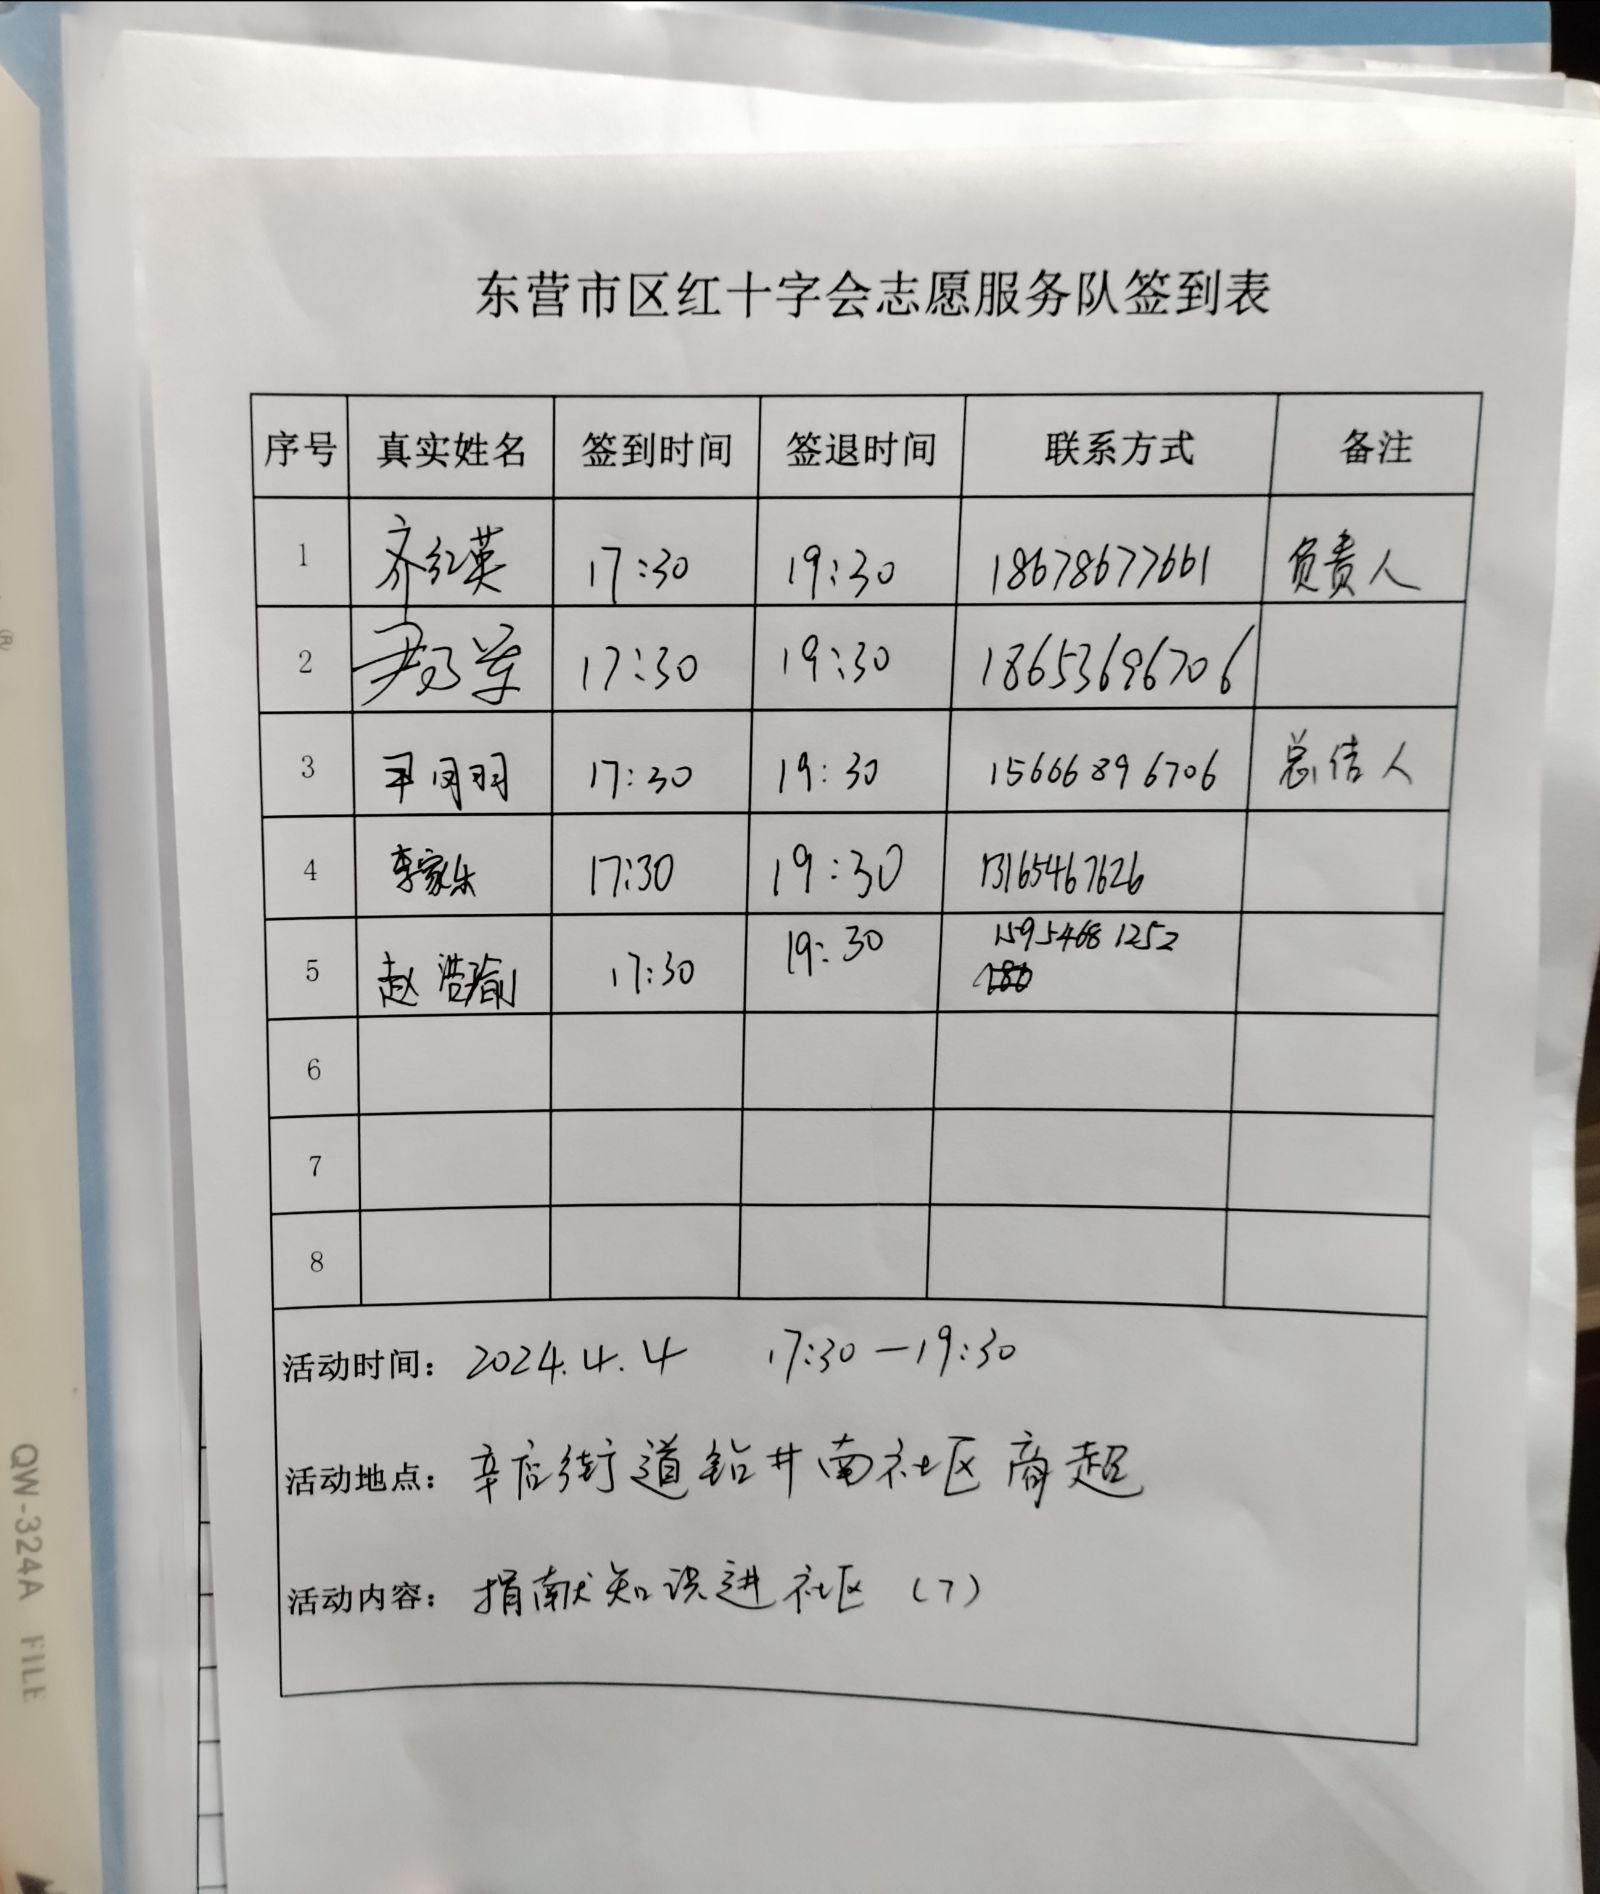 东营市区红十字会志愿服务队签到表
序号 真实姓名 签到时间 签退时间 联系方式 备注
1 齐红英 17:30 19:30 18678677661 负责人
2 尹 17:30 19:30 18653696706
3 17:30 19:30 15666896706 总结人
4 李家乐 17:30 19:30 13165467626
5 赵浩瑜 17:30 19:30 15954681252
6
7
8
活动时间: 2024.4.4 17:30—19:30
活动地点: 辛店街道钻井南社区商超
活动内容: 捐献知识进社区 (7)
®
QW-324A FILE